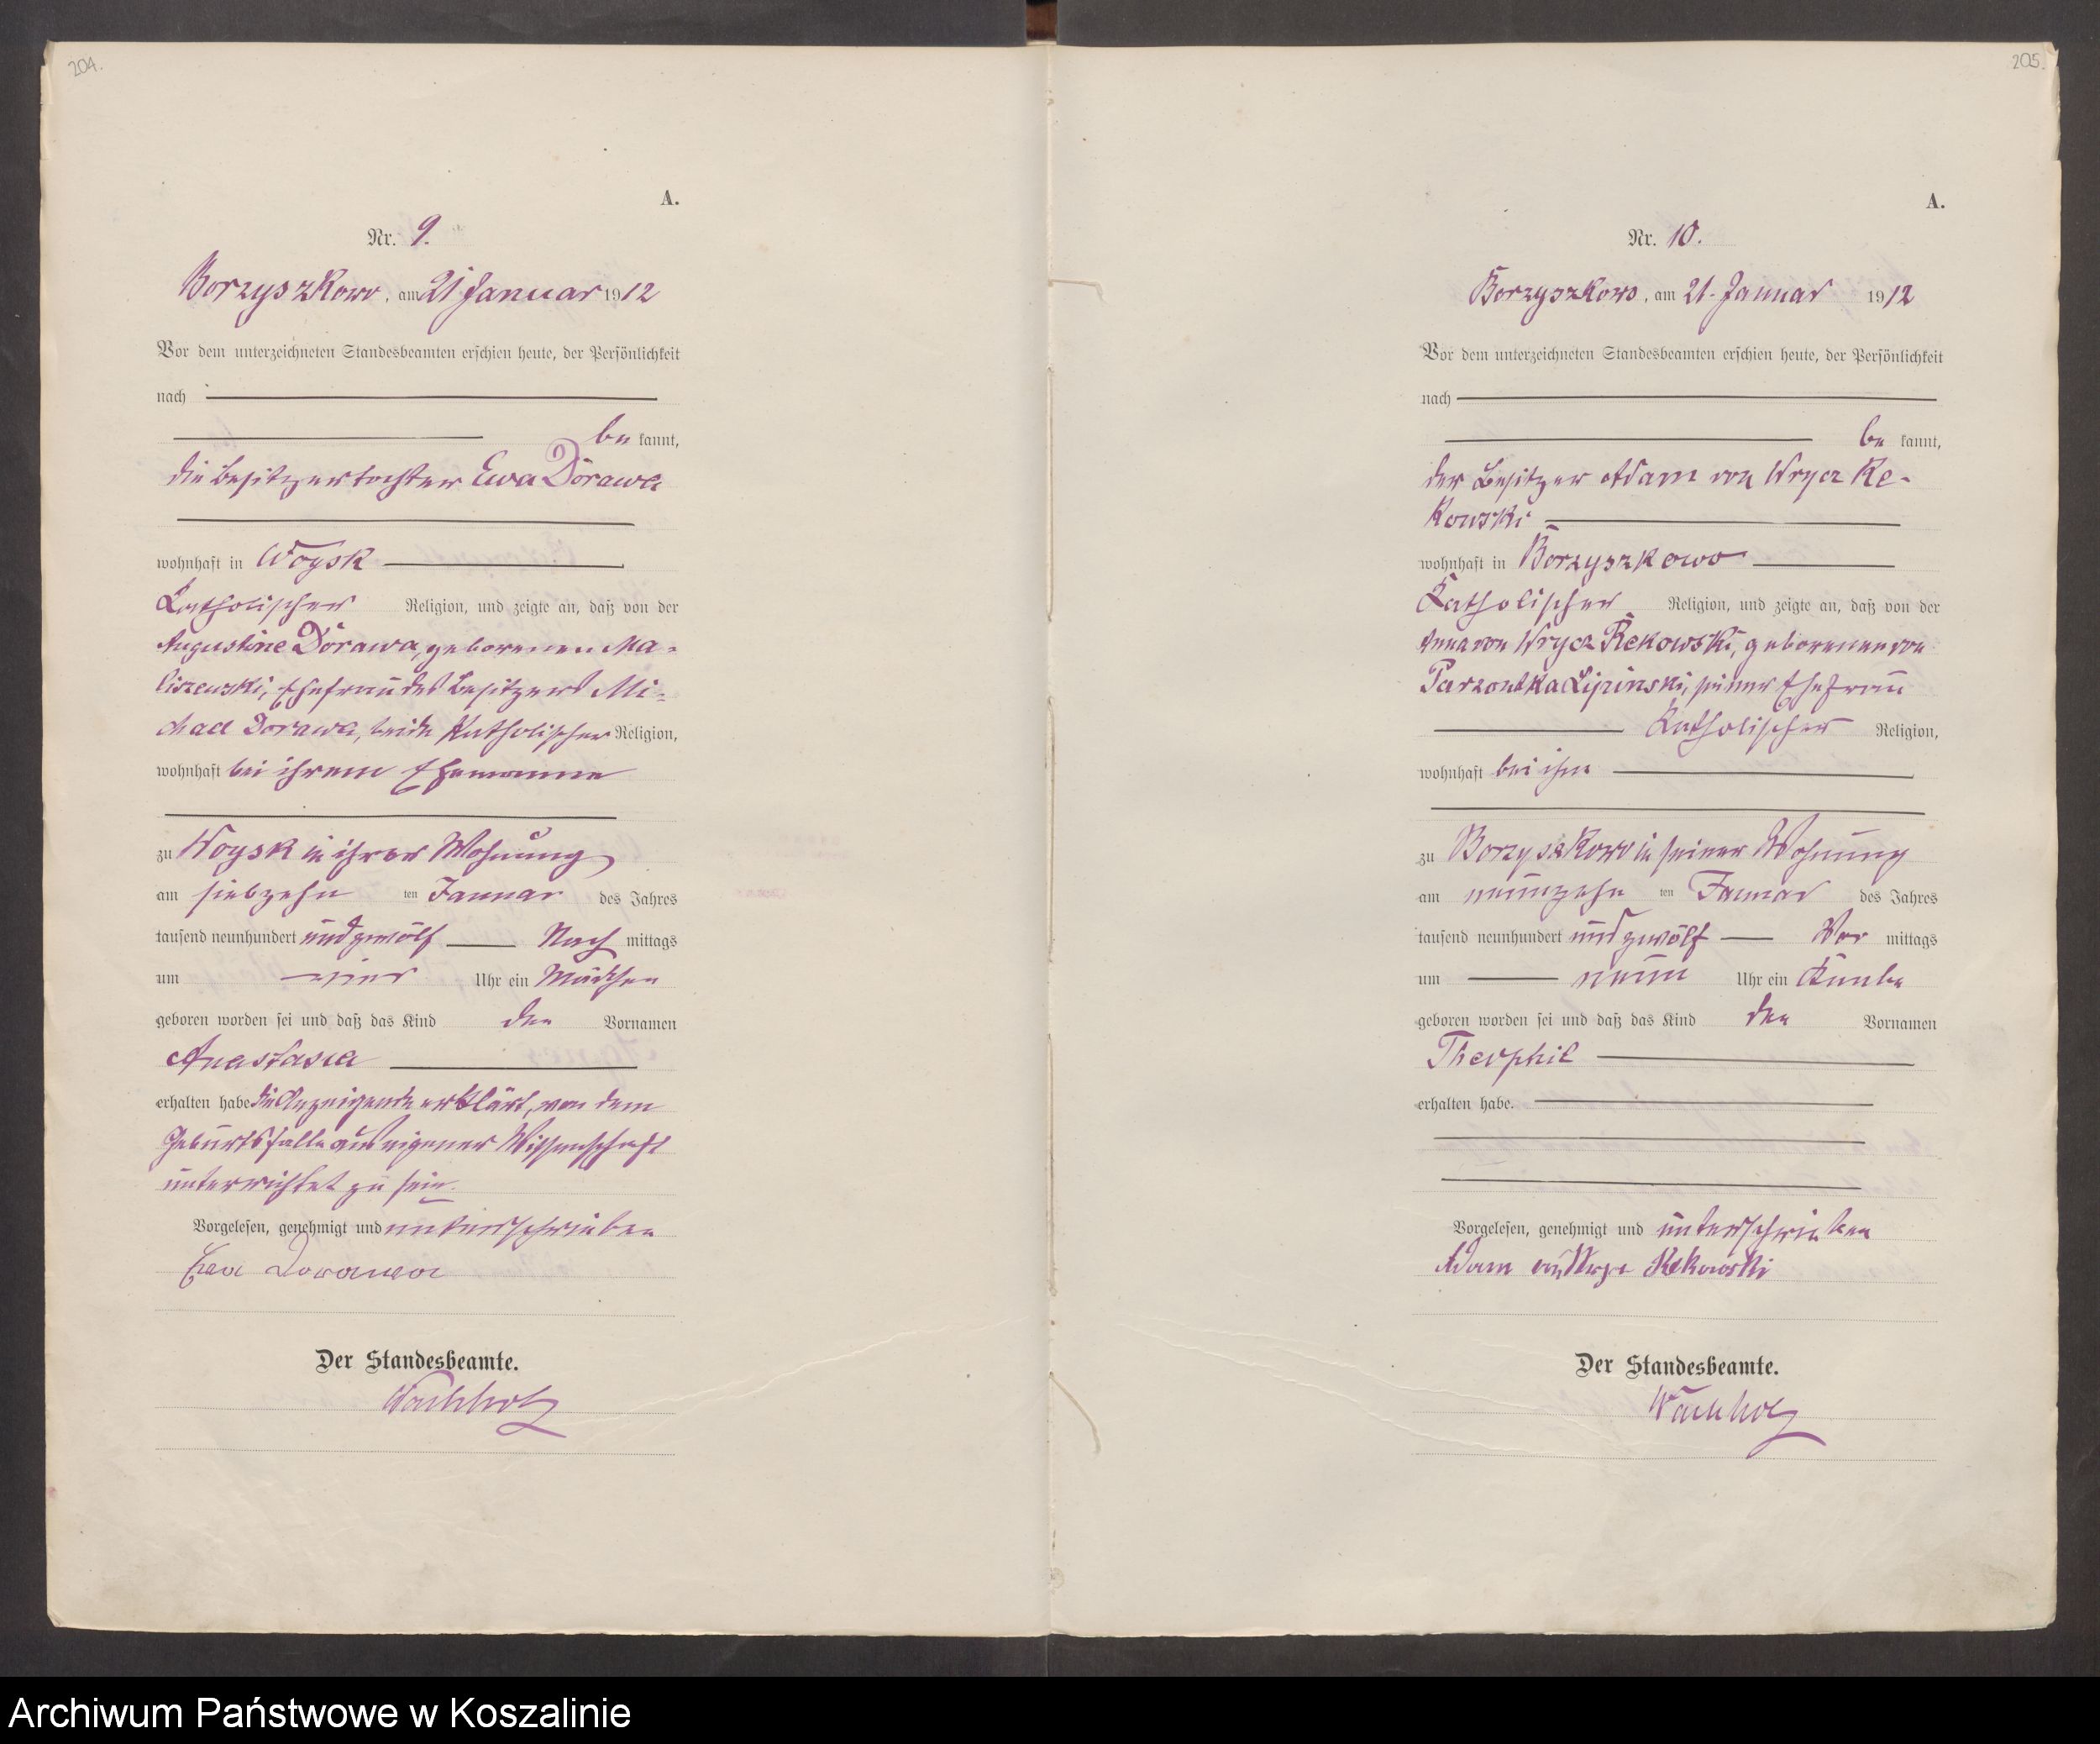 204.
A.
Nr. 9.
Borzyszkowo, am 21 Januar 1912
Vor dem unterzeichneten Standesbeamten erschien heute, der Persönlichkeit
nach
be kannt,
die Besitzertochter Ewa Dorawa
wohnhaft in Woysk
Katholischer Religion, und zeigte an, daß von der
Augustine Dorawa, geborenen Ma-
liszewski, Ehefrau des Besitzers Mi-
chael Dorawa, beide Katholischer Religion,
wohnhaft bei ihrem Ehemanne
zu Woysk in ihrer Wohnung
am siebzehn ten Januar des Jahres
tausend neunhundert und zwölf Nach mittags
um vier Uhr ein Mädchen
geboren worden sei und daß das Kind den Vornamen
Anastasia
erhalten habe die Anzeigende erklärt, von dem
Geburtsfalle aus eigener Wissenschaft
unterrichtet zu sein.
Vorgelesen, genehmigt und unterschrieben
Ewa Dorawa
Der Standesbeamte.
Wachholz
205.
A.
Nr. 10.
Borzyszkowo, am 21. Januar 1912
Vor dem unterzeichneten Standesbeamten erschien heute, der Persönlichkeit
nach
be kannt,
der Besitzer Adam von Wrycz Re-
kowski
wohnhaft in Borzyszkowo
Katholischer Religion, und zeigte an, daß von der
Anna von Wrycz Rekowski, geborenen von
Parzontka Lipinski, seiner Ehefrau
Katholischer Religion,
wohnhaft bei ihm
zu Borzyszkowo in seiner Wohnung
am neunzehn ten Januar des Jahres
tausend neunhundert und zwölf Vor mittags
um neun Uhr ein Knabe
geboren worden sei und daß das Kind den Vornamen
Theophil
erhalten habe.
Vorgelesen, genehmigt und unterschrieben
Adam von Wrycz Rekowski
Der Standesbeamte.
Wachholz
Archiwum Państwowe w Koszalinie